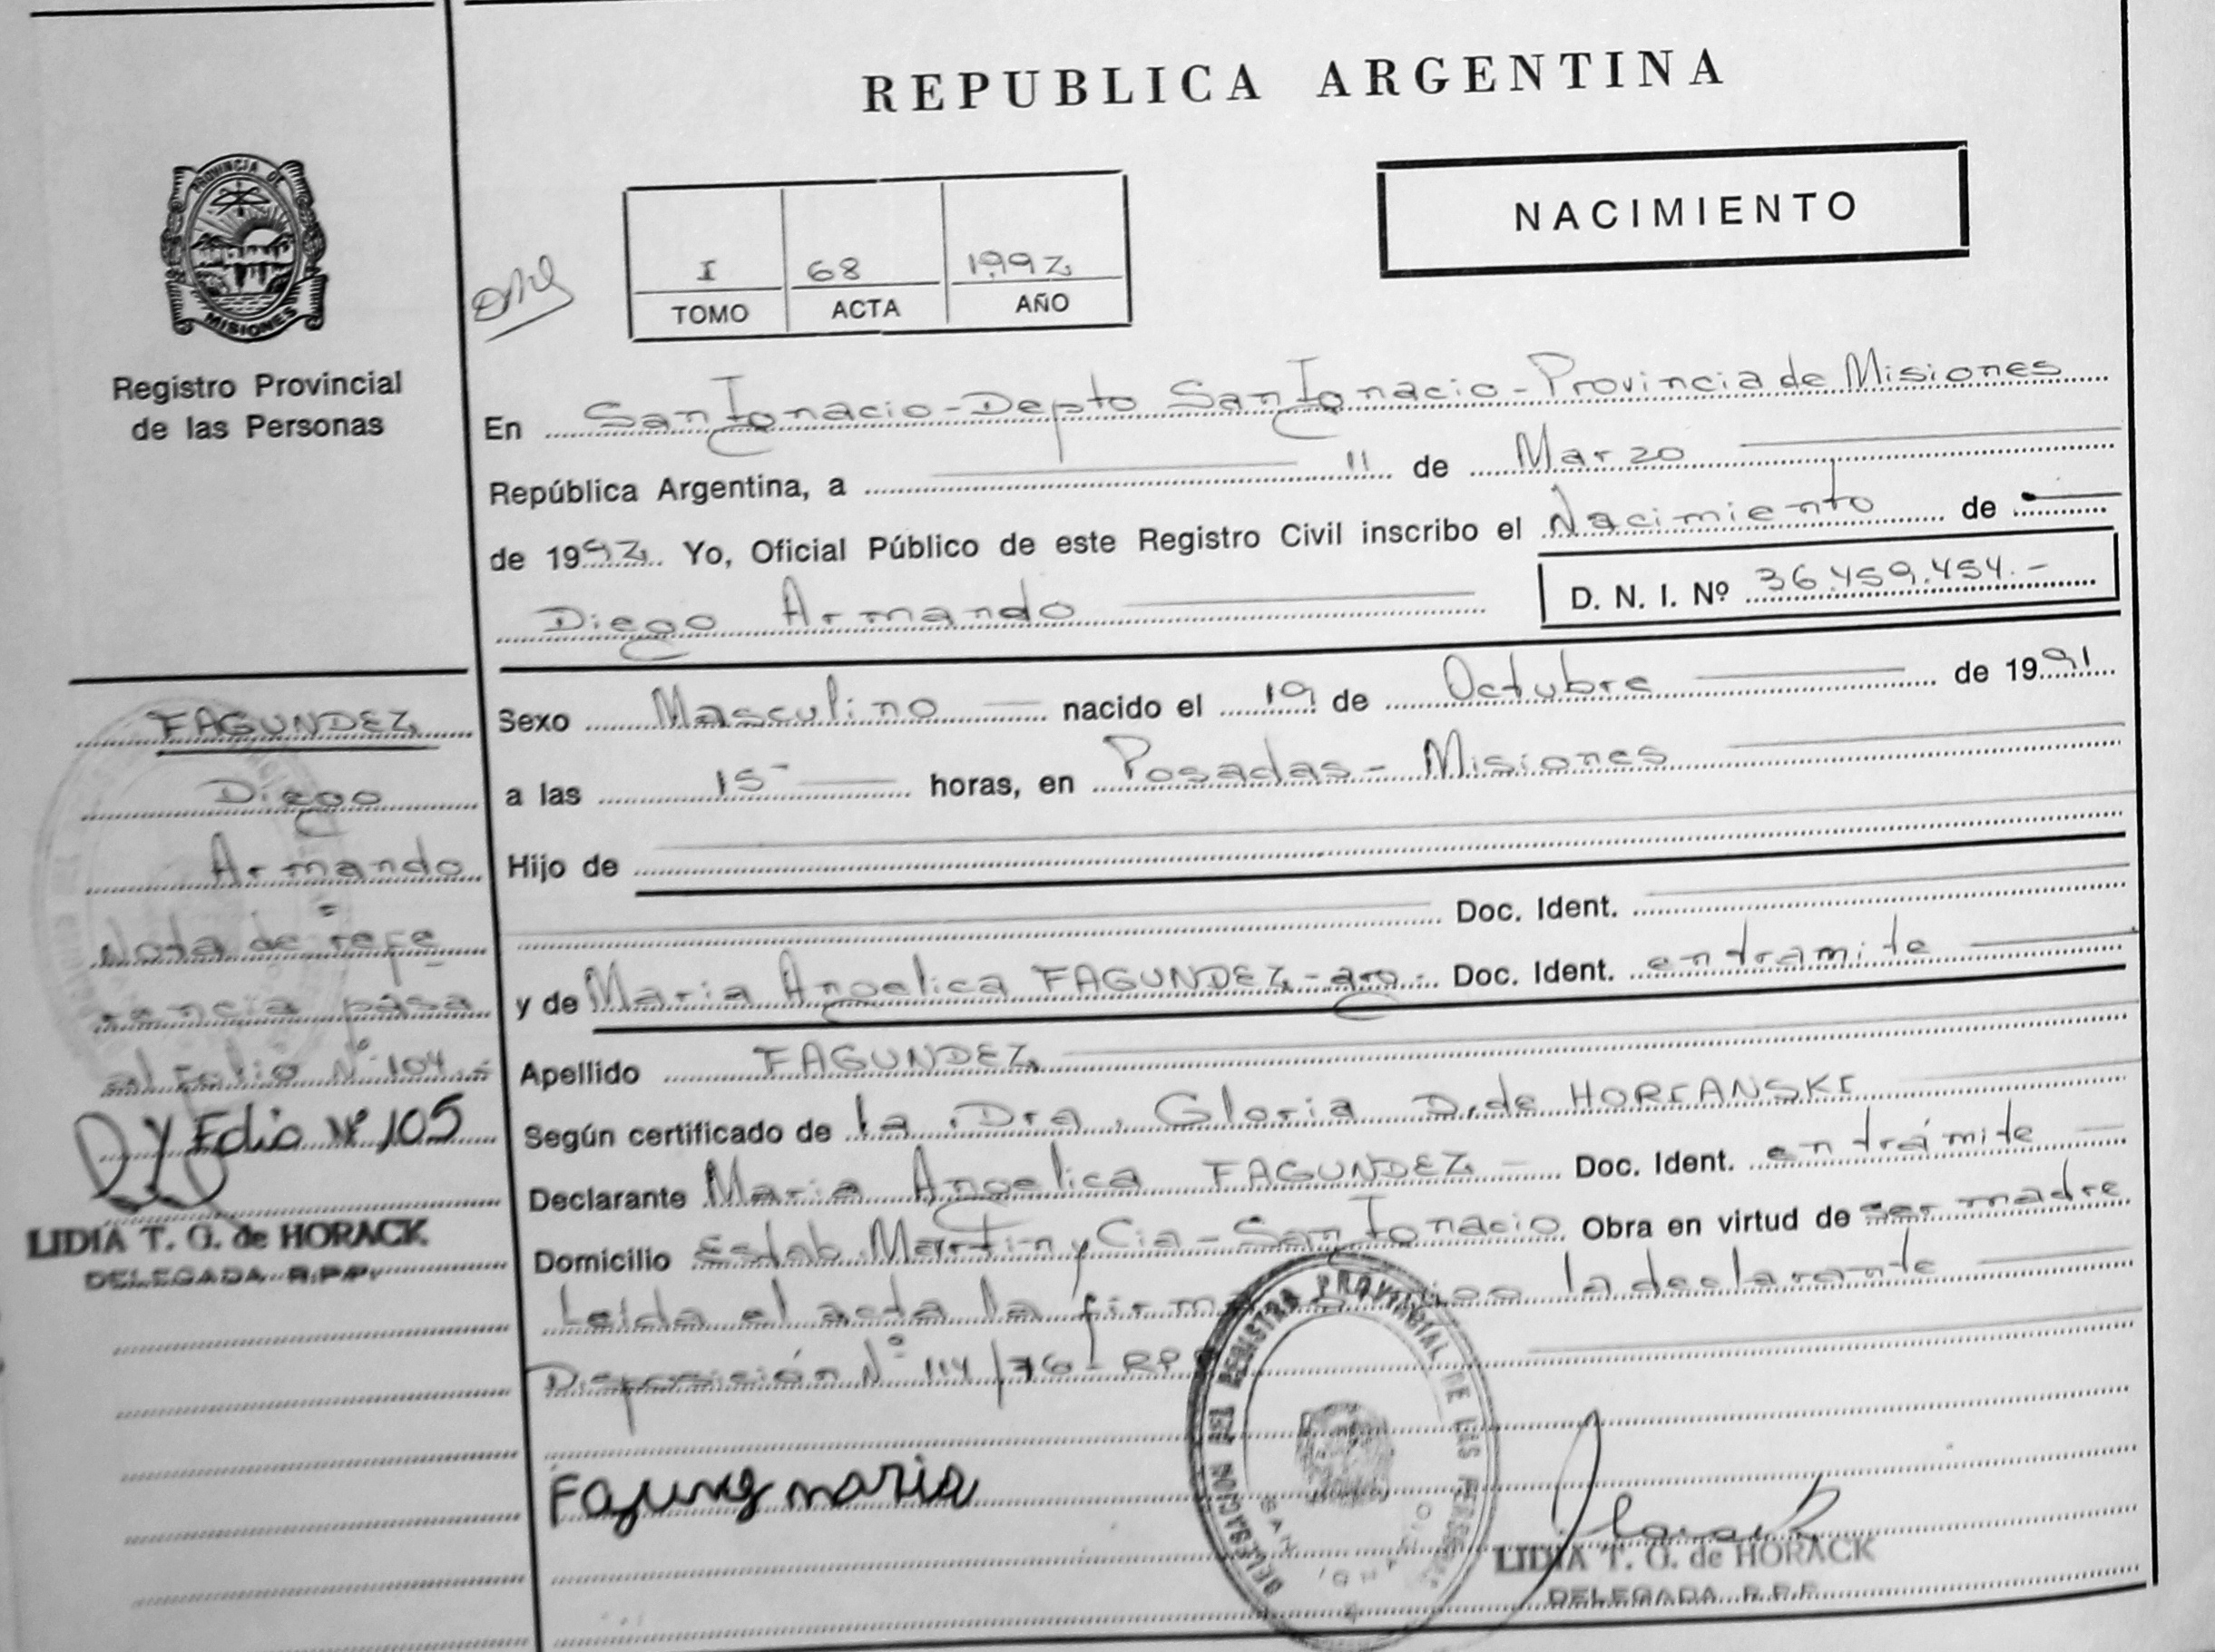 REPUBLICA ARGENTINA
PROVINCIA DE MISIONES
Registro Provincial
de las Personas
NACIMIENTO
I 68 1992
TOMO ACTA AÑO
En San Ignacio - Depto San Ignacio - Provincia de Misiones
República Argentina, a 11 de Marzo
de 1992. Yo, Oficial Público de este Registro Civil inscribo el Nacimiento de
Diego Armando
D. N. I. Nº 36.459.454.-
Sexo Masculino nacido el 19 de Octubre de 1991
a las 15 horas, en Posadas - Misiones
Hijo de
Doc. Ident.
y de Maria Angelica FAGUNDEZ - arg - Doc. Ident. en tramite
Apellido FAGUNDEZ
Según certificado de la Dra. Gloria D. de
Declarante Maria Angelica FAGUNDEZ - Doc. Ident. en trámite
Domicilio Estab. Martin y Cia - San Ignacio Obra en virtud de ser madre
Leida el acta la firma la declarante
Disposición Nº 114/76 - RPP
FAGUNDEZ
Diego
Armando
Nota de refe
rencia pasa
al Folio Nº 104
Y Folio Nº 105
LIDIA T. G. de HORACK
DELEGADA R.P.P.
maria
DELEGACION DEL REGISTRO PROVINCIAL DE LAS PERSONAS
SAN IGNACIO
LIDIA T. G. de HORACK
DELEGADA R.P.P.